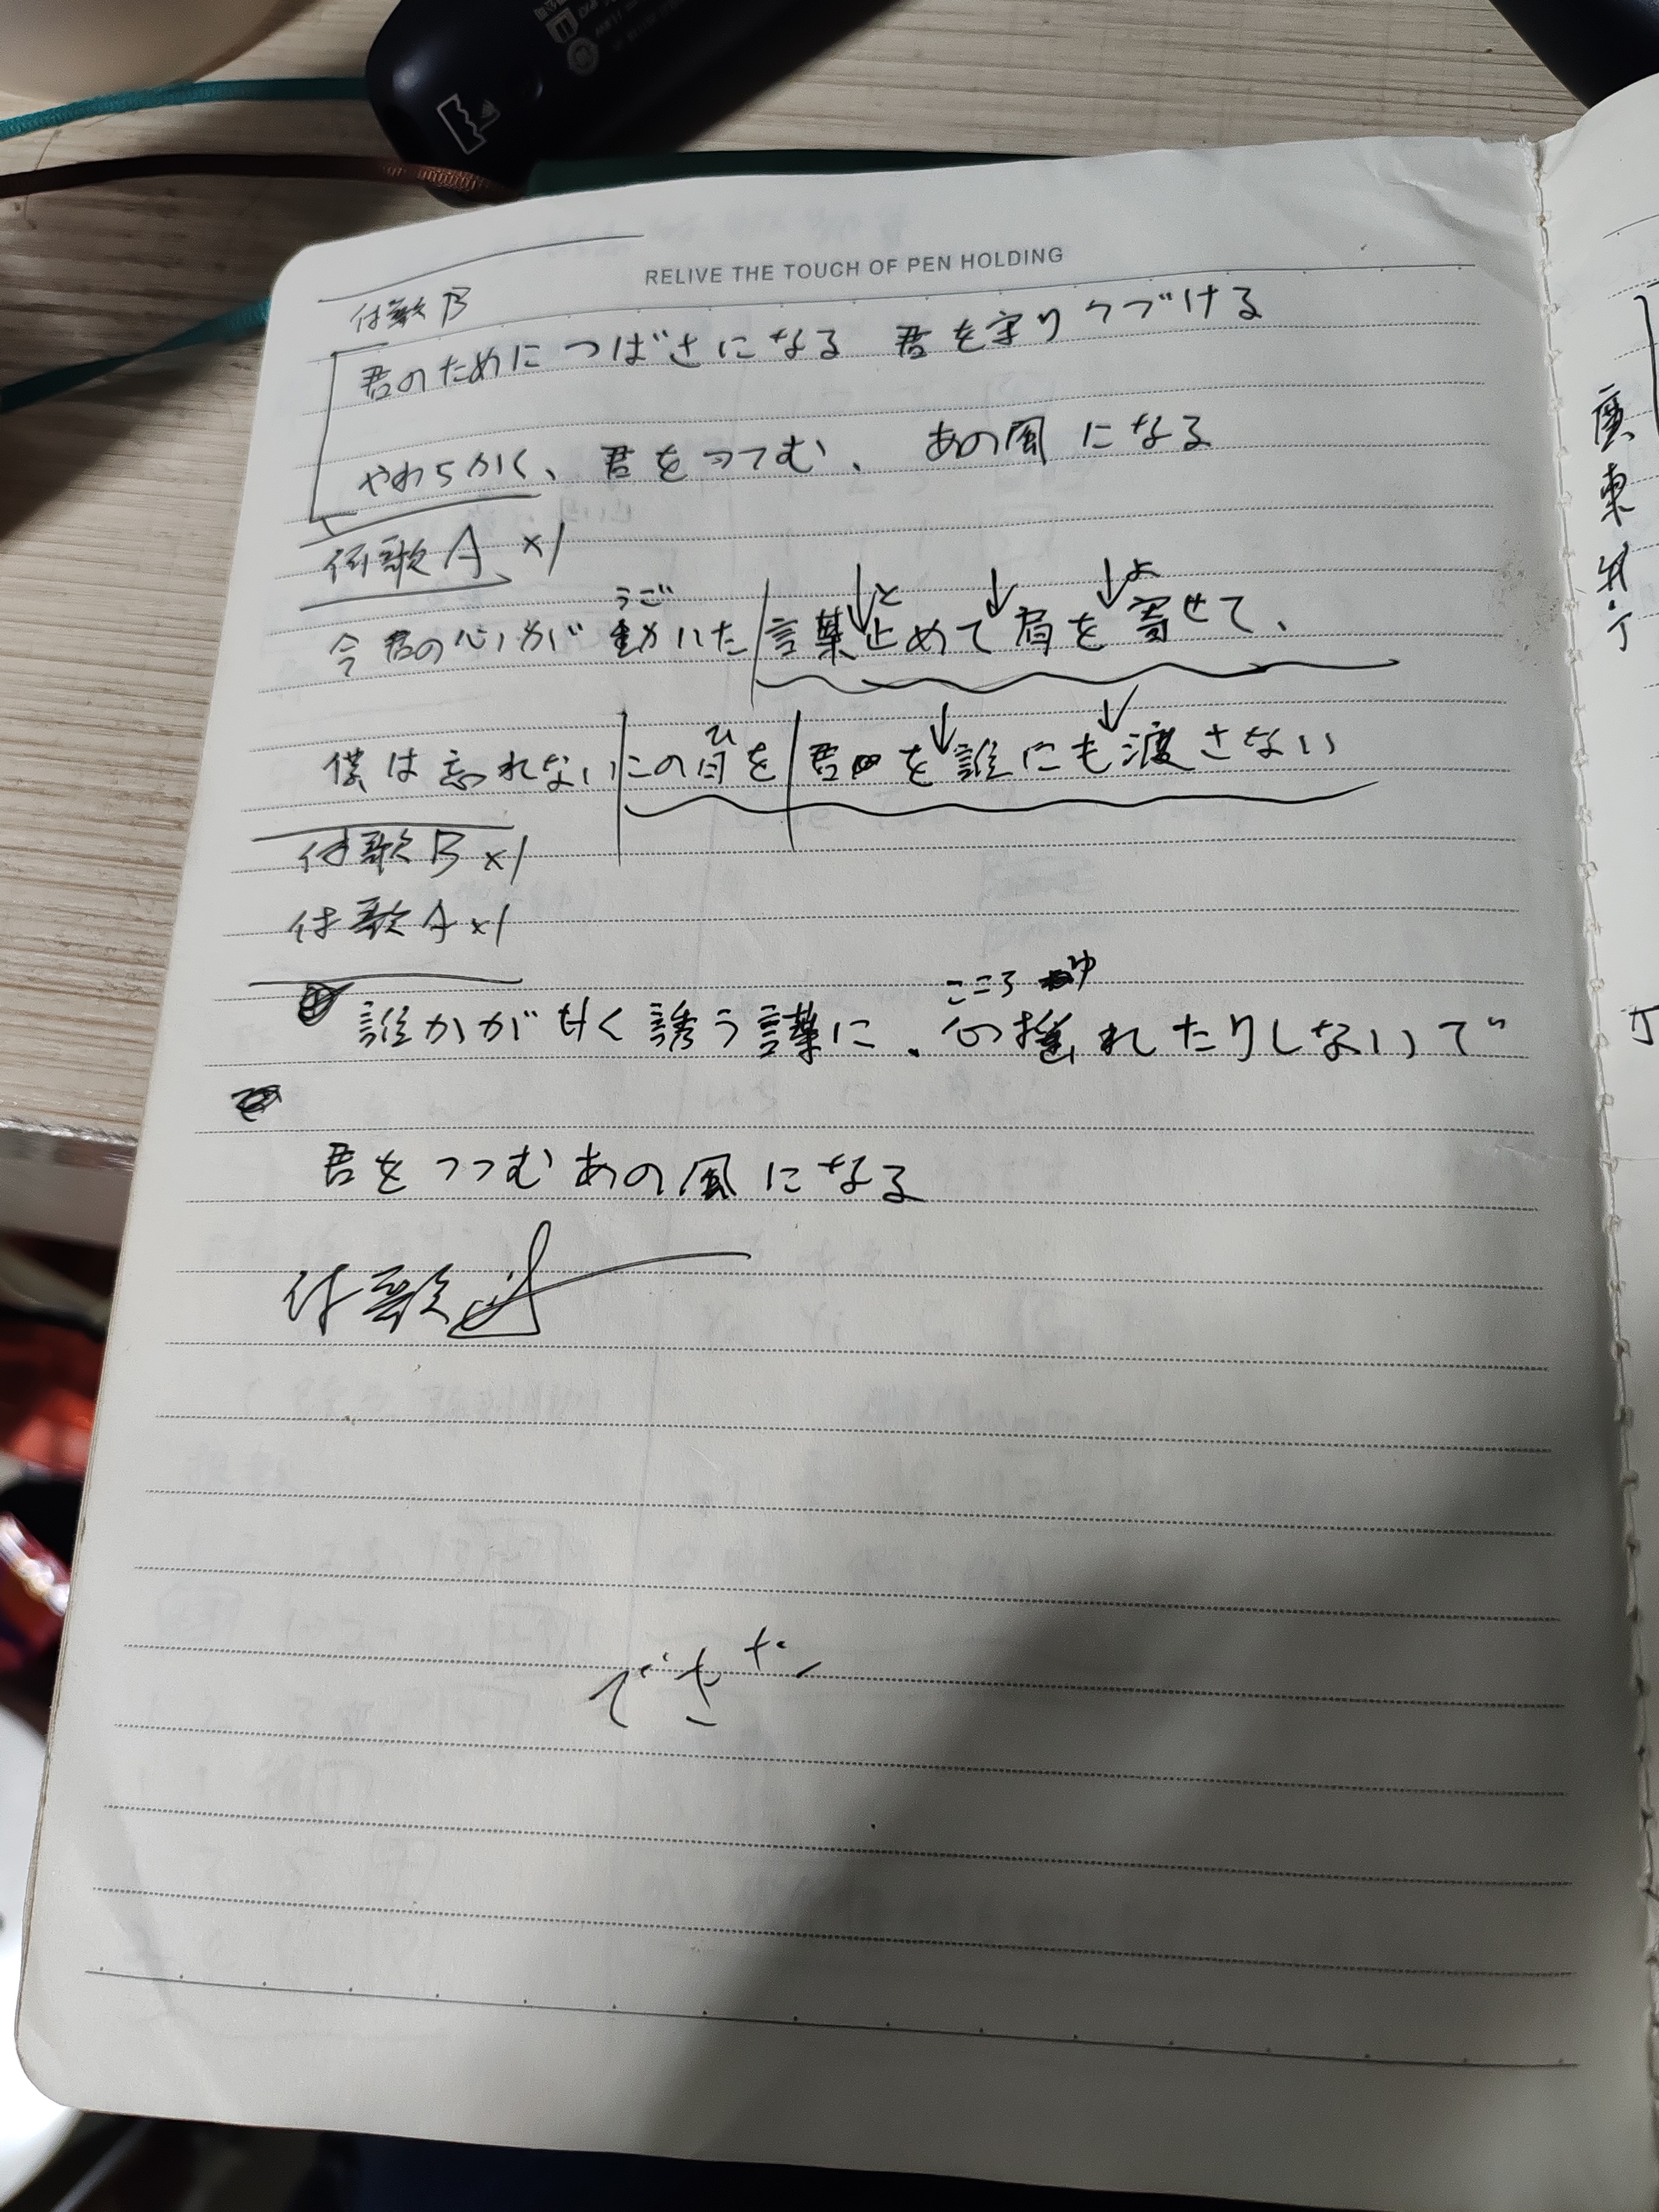 RELIVE THE TOUCH OF PEN HOLDING
付歌B
君のために つばさになる 君を守りつづける
やわらかく、君をつつむ、あの風になる
付歌A ×1
うご と よ
今君の心が動いた言葉止めて肩を寄せて、
ひ
僕は忘れないこの日を君を誰にも渡さない
付歌B ×1
付歌A ×1
こころ ゆ
誰かが甘く誘う言葉に、心揺れたりしないで
君をつつむあの風になる
付歌
できた
廣東